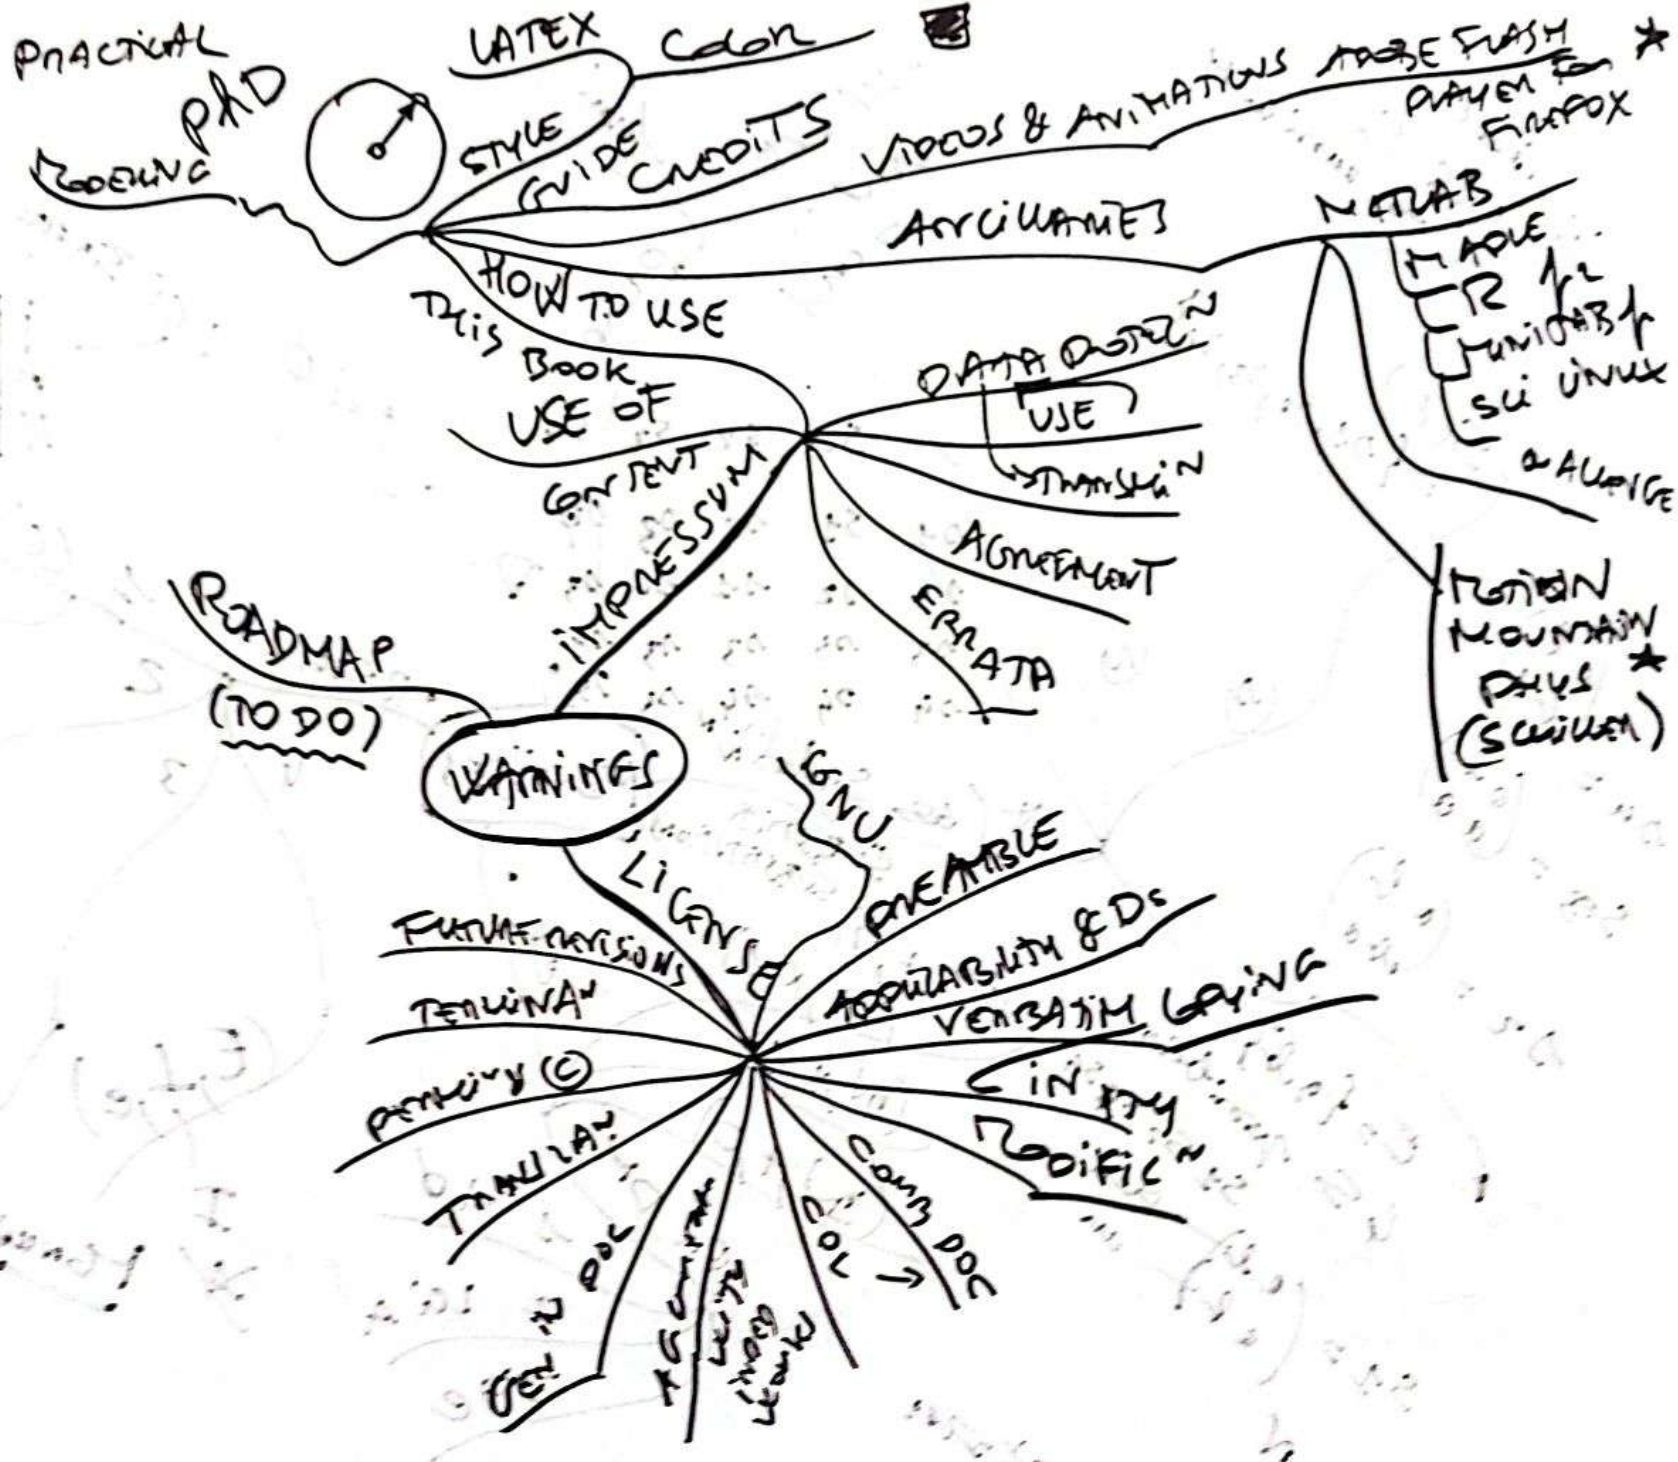 PRACTICAL
PhD
MODELING
LATEX
COLOR
STYLE
GUIDE
CREDITS
VIDEOS & ANIMATIONS
ADOBE FLASH
PLAYER FOR
FIREFOX
ANCILLARIES
MATLAB
MAPLE
R
MINITAB
SCI LINUX
MOTION
MOUNTAIN
PHYS
(SCHILLER)
HOW TO USE
THIS
BOOK
USE OF
CONTENT
DATA
USE
AGREEMENT
ERRATA
IMPRESSUM
ROADMAP
(TO DO)
WARNINGS
LICENSE
GNU
PREAMBLE
APPLICABILITY & Ds
VERBATIM COPYING
IN
QTY
MODIFIC~
COMB DOC
COL →
DOC
FUTURE REVISIONS
TERMINA~
©